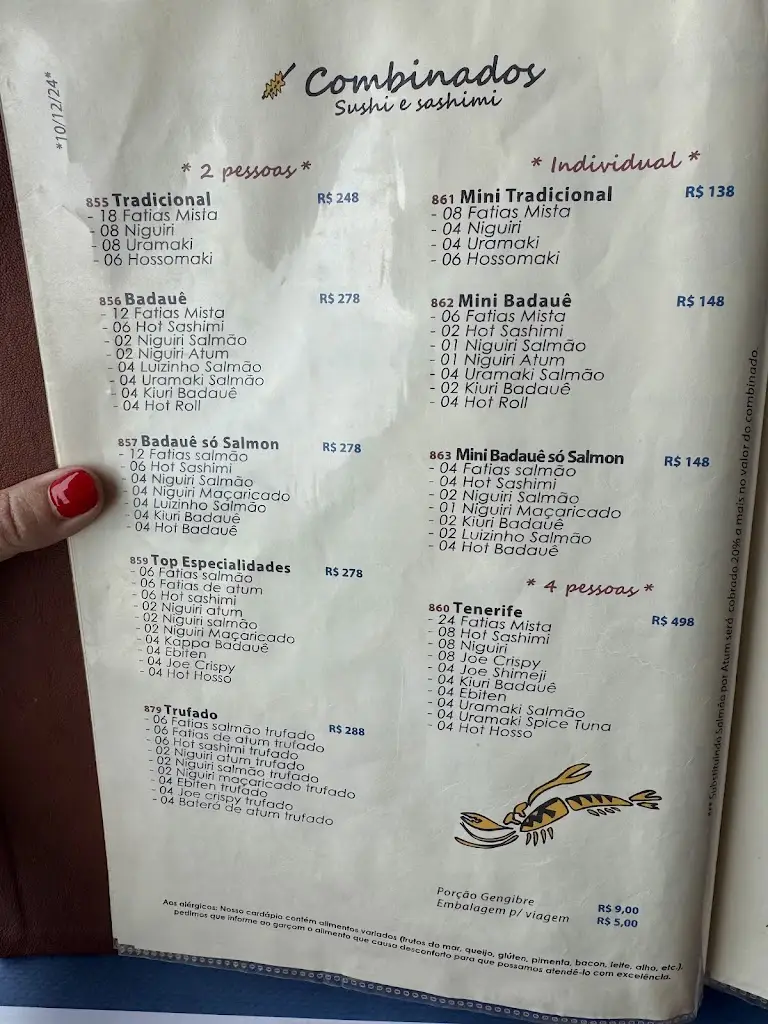 *10/12/24*
Combinados
Sushi e sashimi
* 2 pessoas *
855 Tradicional R$ 248
- 18 Fatias Mista
- 08 Niguiri
- 08 Uramaki
- 06 Hossomaki
856 Badauê R$ 278
- 12 Fatias Mista
- 06 Hot Sashimi
- 02 Niguiri Salmão
- 02 Niguiri Atum
- 04 Luizinho Salmão
- 04 Uramaki Salmão
- 04 Kiuri Badauê
- 04 Hot Roll
857 Badauê só Salmon R$ 278
- 12 Fatias salmão
- 06 Hot Sashimi
- 04 Niguiri Salmão
- 04 Niguiri Maçaricado
- 04 Luizinho Salmão
- 04 Kiuri Badauê
- 04 Hot Badauê
859 Top Especialidades R$ 278
- 06 Fatias salmão
- 06 Fatias de atum
- 06 Hot sashimi
- 02 Niguiri atum
- 02 Niguiri salmão
- 02 Niguiri Maçaricado
- 04 Kappa Badauê
- 04 Ebiten
- 04 Joe Crispy
- 04 Hot Hosso
879 Trufado R$ 288
- 06 Fatias salmão trufado
- 06 Fatias de atum trufado
- 06 Hot sashimi trufado
- 02 Niguiri atum trufado
- 02 Niguiri salmão trufado
- 02 Niguiri maçaricado trufado
- 04 Ebiten trufado
- 04 Joe crispy trufado
- 04 Baterá de atum trufado
* Individual *
861 Mini Tradicional R$ 138
- 08 Fatias Mista
- 04 Niguiri
- 04 Uramaki
- 06 Hossomaki
862 Mini Badauê R$ 148
- 06 Fatias Mista
- 02 Hot Sashimi
- 01 Niguiri Salmão
- 01 Niguiri Atum
- 04 Uramaki Salmão
- 02 Kiuri Badauê
- 04 Hot Roll
863 Mini Badauê só Salmon R$ 148
- 04 Fatias salmão
- 04 Hot Sashimi
- 02 Niguiri Salmão
- 01 Niguiri Maçaricado
- 02 Kiuri Badauê
- 02 Luizinho Salmão
- 04 Hot Badauê
* 4 pessoas *
860 Tenerife R$ 498
- 24 Fatias Mista
- 08 Hot Sashimi
- 08 Niguiri
- 08 Joe Crispy
- 04 Joe Shimeji
- 04 Kiuri Badauê
- 04 Ebiten
- 04 Uramaki Salmão
- 04 Uramaki Spice Tuna
- 04 Hot Hosso
*** Substituindo Salmão por Atum será cobrado 20% a mais no valor do combinado.
Porção Gengibre R$ 9,00
Embalagem p/ viagem R$ 5,00
Aos alérgicos: Nosso cardápio contém alimentos variados (frutos do mar, queijo, glúten, pimenta, bacon, leite, alho, etc.).
pedimos que informe ao garçom o alimento que causa desconforto para que possamos atendê-lo com excelência.